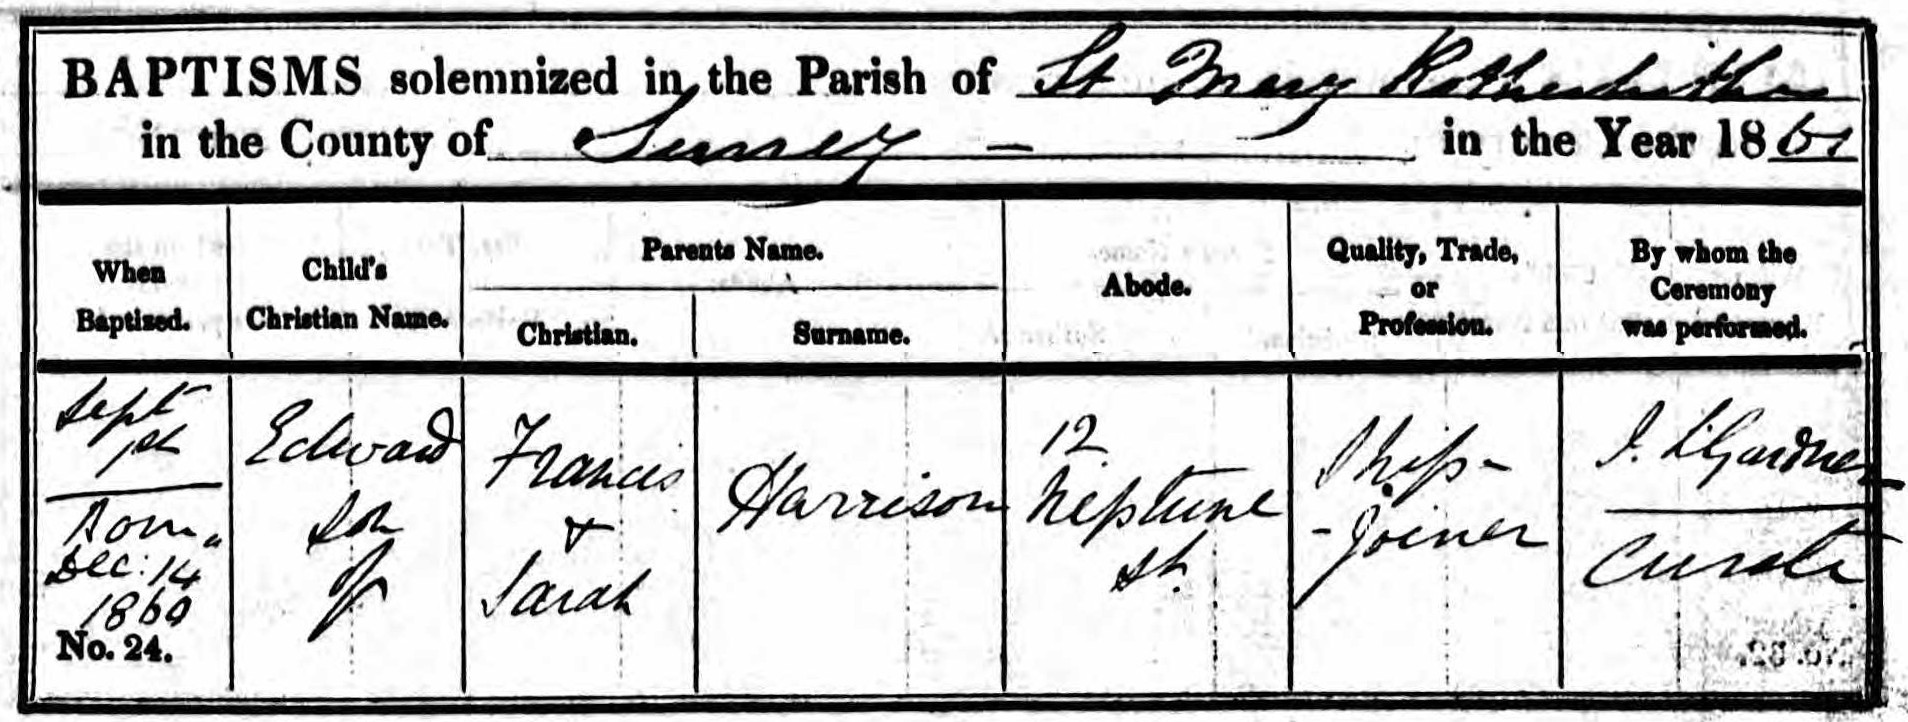 BAPTISMS solemnized in the Parish of St Mary Rotherhithe
in the County of Surrey – in the Year 1861
When
Baptized.
Child's
Christian Name.
Parents Name.
Christian.
Surname.
Abode.
Quality, Trade,
or
Profession.
By whom the
Ceremony
was performed.
Sept
1st
Born
Dec: 14
1860
No. 24.
Edward
son
of
Francis
&
Sarah
Harrison
12
Neptune
St.
Ship-
-Joiner
Gardner
Curate